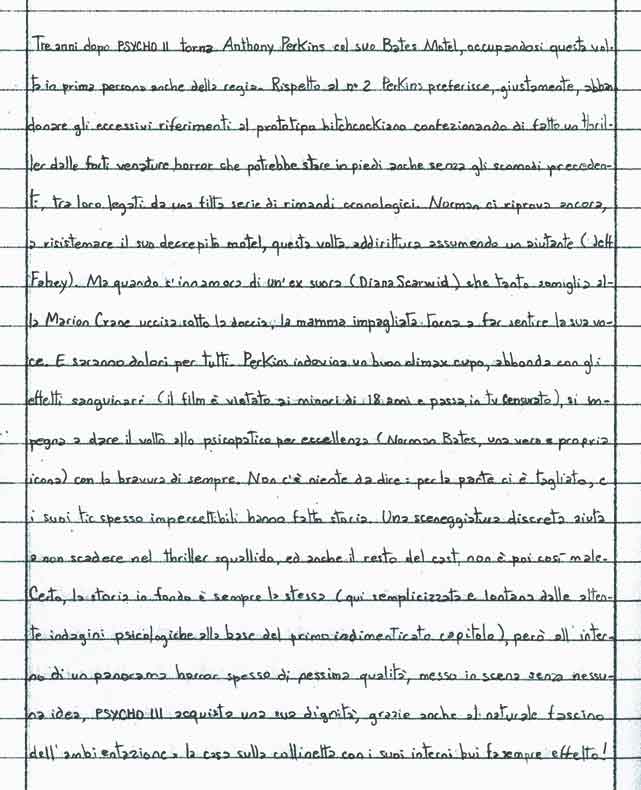 Tre anni dopo PSYCHO II torna Anthony Perkins col suo Bates Motel, occupandosi questa vol-
ta in prima persona anche della regia. Rispetto al n° 2 Perkins preferisce, giustamente, abban
donare gli eccessivi riferimenti al prototipo hitchcockiano confezionando di fatto un thril-
ler dalle forti venature horror che potrebbe stare in piedi anche senza gli scomodi preceden-
ti, tra loro legati da una fitta serie di rimandi cronologici. Norman ci riprova ancora,
a risistemare il suo decrepito motel, questa volta addirittura assumendo un aiutante (Jeff
Fahey). Ma quando s'innamora di un'ex suora (Diana Scarwid) che tanto somiglia al-
la Marion Crane uccisa sotto la doccia, la mamma impagliata torna a far sentire la sua vo-
ce. E saranno dolori per tutti. Perkins indovina un buon climax cupo, abbonda con gli
effetti sanguinari (il film è vietato ai minori di 18 anni e passa in tv censurato), si im-
pegna a dare il volto allo psicopatico per eccellenza (Norman Bates, una vera e propria
icona) con la bravura di sempre. Non c'è niente da dire: per la parte ci è tagliato, e
i suoi tic spesso impercettibili hanno fatto storia. Una sceneggiatura discreta aiuta
a non scadere nel thriller squallido, ed anche il resto del cast non è poi così male.
Certo, la storia in fondo è sempre la stessa (qui semplicizzata e lontana dalle atten-
te indagini psicologiche alla base del primo indimenticato capitolo), però all'inter-
no di un panorama horror spesso di pessima qualità, messo in scena senza nessu-
na idea, PSYCHO III acquista una sua dignità, grazie anche al naturale fascino
dell'ambientazione: la casa sulla collinetta con i suoi interni bui fa sempre effetto!